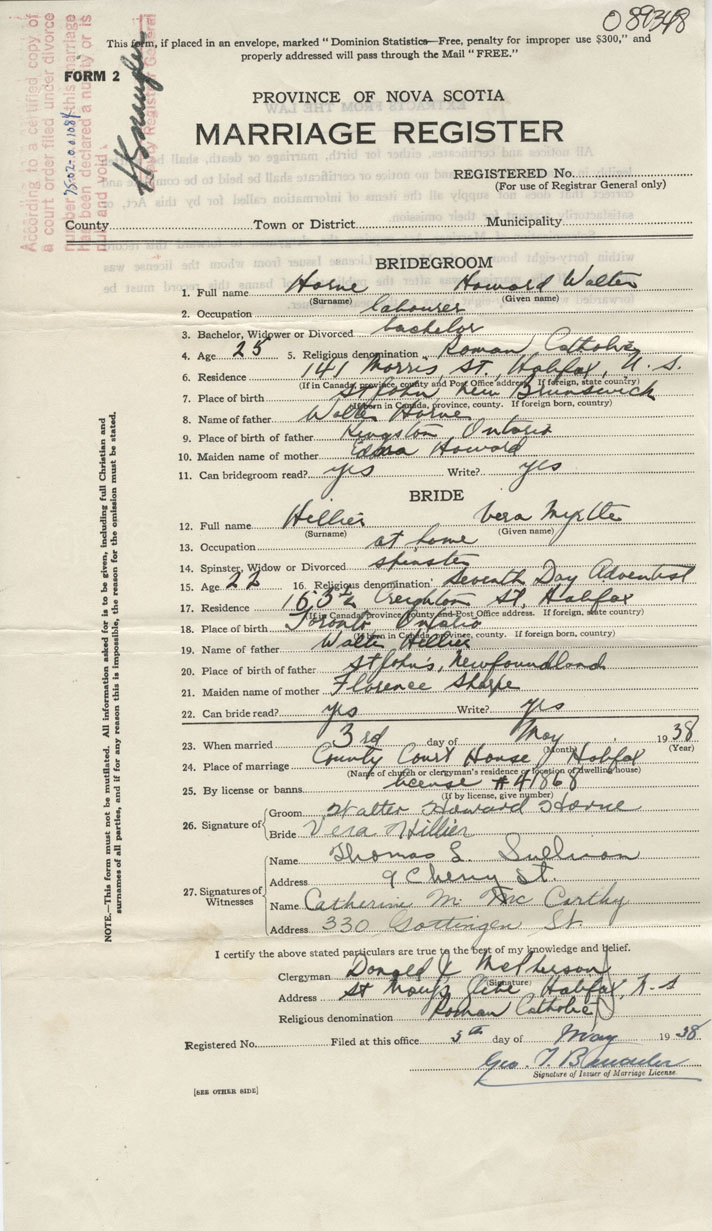 089348
This form, if placed in an envelope, marked "Dominion Statistics—Free, penalty for improper use $300," and
properly addressed will pass through the Mail "FREE."
FORM 2
According to a certified copy of
a court order filed under divorce
number this marriage
has been declared a nullity or is
null and void.
Deputy Registrar General
75-02-001084
PROVINCE OF NOVA SCOTIA
MARRIAGE REGISTER
REGISTERED No.
(For use of Registrar General only)
County Town or District Municipality
BRIDEGROOM
1. Full name Horne Howard Walter
(Surname) (Given name)
2. Occupation labourer
3. Bachelor, Widower or Divorced bachelor
4. Age 25 5. Religious denomination Roman Catholic
6. Residence 141 Morris St, Halifax, N.S.
(If in Canada, province, county and Post Office address. If foreign, state country)
7. Place of birth St John, New Brunswick
(If born in Canada, province, county. If foreign born, country)
8. Name of father Walter Horne
9. Place of birth of father Kingston Ontario
10. Maiden name of mother Edna Howard
11. Can bridegroom read? yes Write? yes
BRIDE
12. Full name Hillier Vera Myrtle
(Surname) (Given name)
13. Occupation at home
14. Spinster, Widow or Divorced spinster
15. Age 22 16. Religious denomination Seventh Day Adventist
17. Residence Creighton St, Halifax
(If in Canada, province, county and Post Office address. If foreign, state country)
18. Place of birth Toronto Ontario
(If born in Canada, province, county. If foreign born, country)
19. Name of father Walter Hillier
20. Place of birth of father St John's, Newfoundland
21. Maiden name of mother Florence Sharpe
22. Can bride read? yes Write? yes
23. When married 3rd day of May 1938
(Month) (Year)
24. Place of marriage County Court House, Halifax
(Name of church or clergyman's residence or location of dwelling house)
25. By license or banns license #41868
(If by license, give number)
26. Signature of Groom Walter Howard Horne
Bride Vera Hillier
27. Signatures of Witnesses
Name Thomas L. Sullivan
Address 9 Cherry St.
Name Catherine M. Mc Carthy
Address 330 Gottingen St.
NOTE.—This form must not be mutilated. All information asked for is to be given, including full Christian and
surnames of all parties, and if for any reason this is impossible, the reason for the omission must be stated.
I certify the above stated particulars are true to the best of my knowledge and belief.
Clergyman Donald J McPherson
(Signature)
Address St Mary's Halifax, N-S
Religious denomination Roman Catholic
Registered No. Filed at this office 5th day of May 1938
Geo. T.
Signature of Issuer of Marriage License.
[SEE OTHER SIDE]